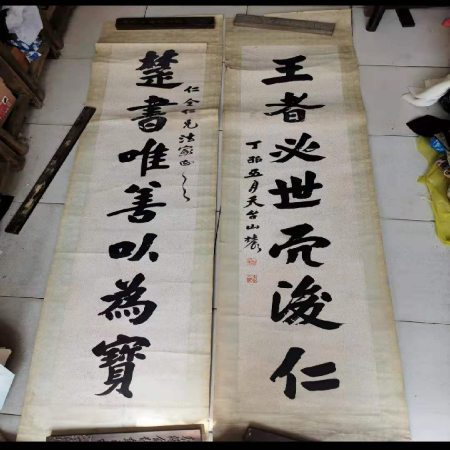 王者必世而後仁
丁卯五月天台山農
仁全仁兄法家正之
楚書唯善以為寶